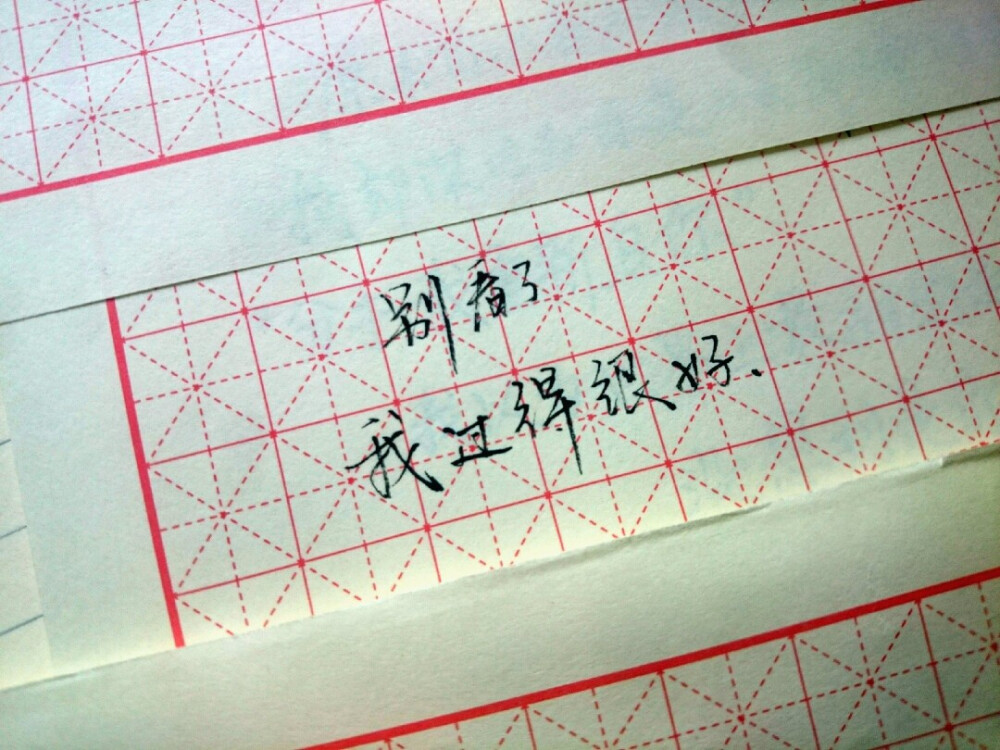 别看了
我过得很好.